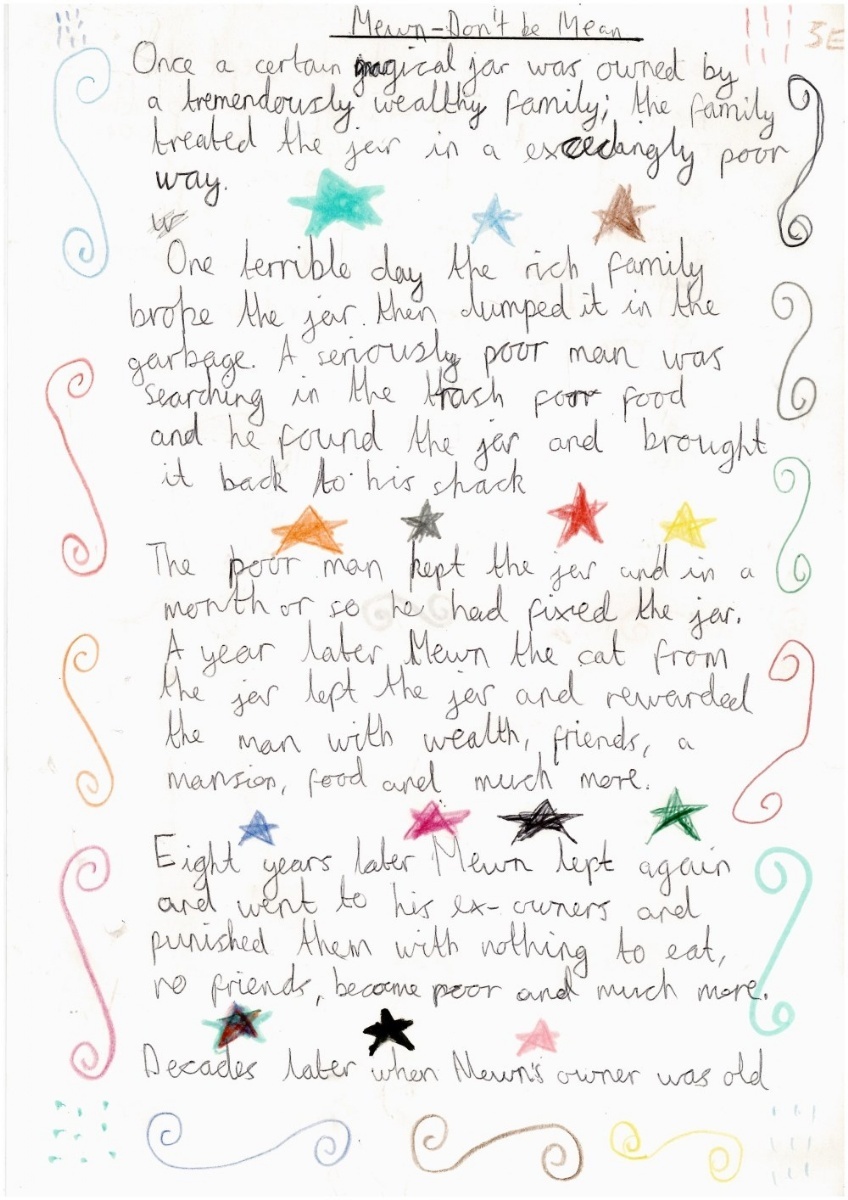 Mewn-Don't be Mean
3E
Once a certain magical jar was owned by
a tremendously wealthy family; the family
treated the jar in a excedingly poor
way.
One terrible day the rich family
broke the jar. then dumped it in the
garbage. A seriously poor man was
searching in the trash poor food
and he found the jar and brought
it back to his shack
The poor man kept the jar and in a
month or so he had fixed the jar.
A year later Mewn the cat from
the jar left the jar and rewarded
the man with wealth, friends, a
mansion, food and much more.
Eight years later Mewn left again
and went to his ex-owners and
punished them with nothing to eat,
no friends, become poor and much more.
Decades later when Mewn's owner was old